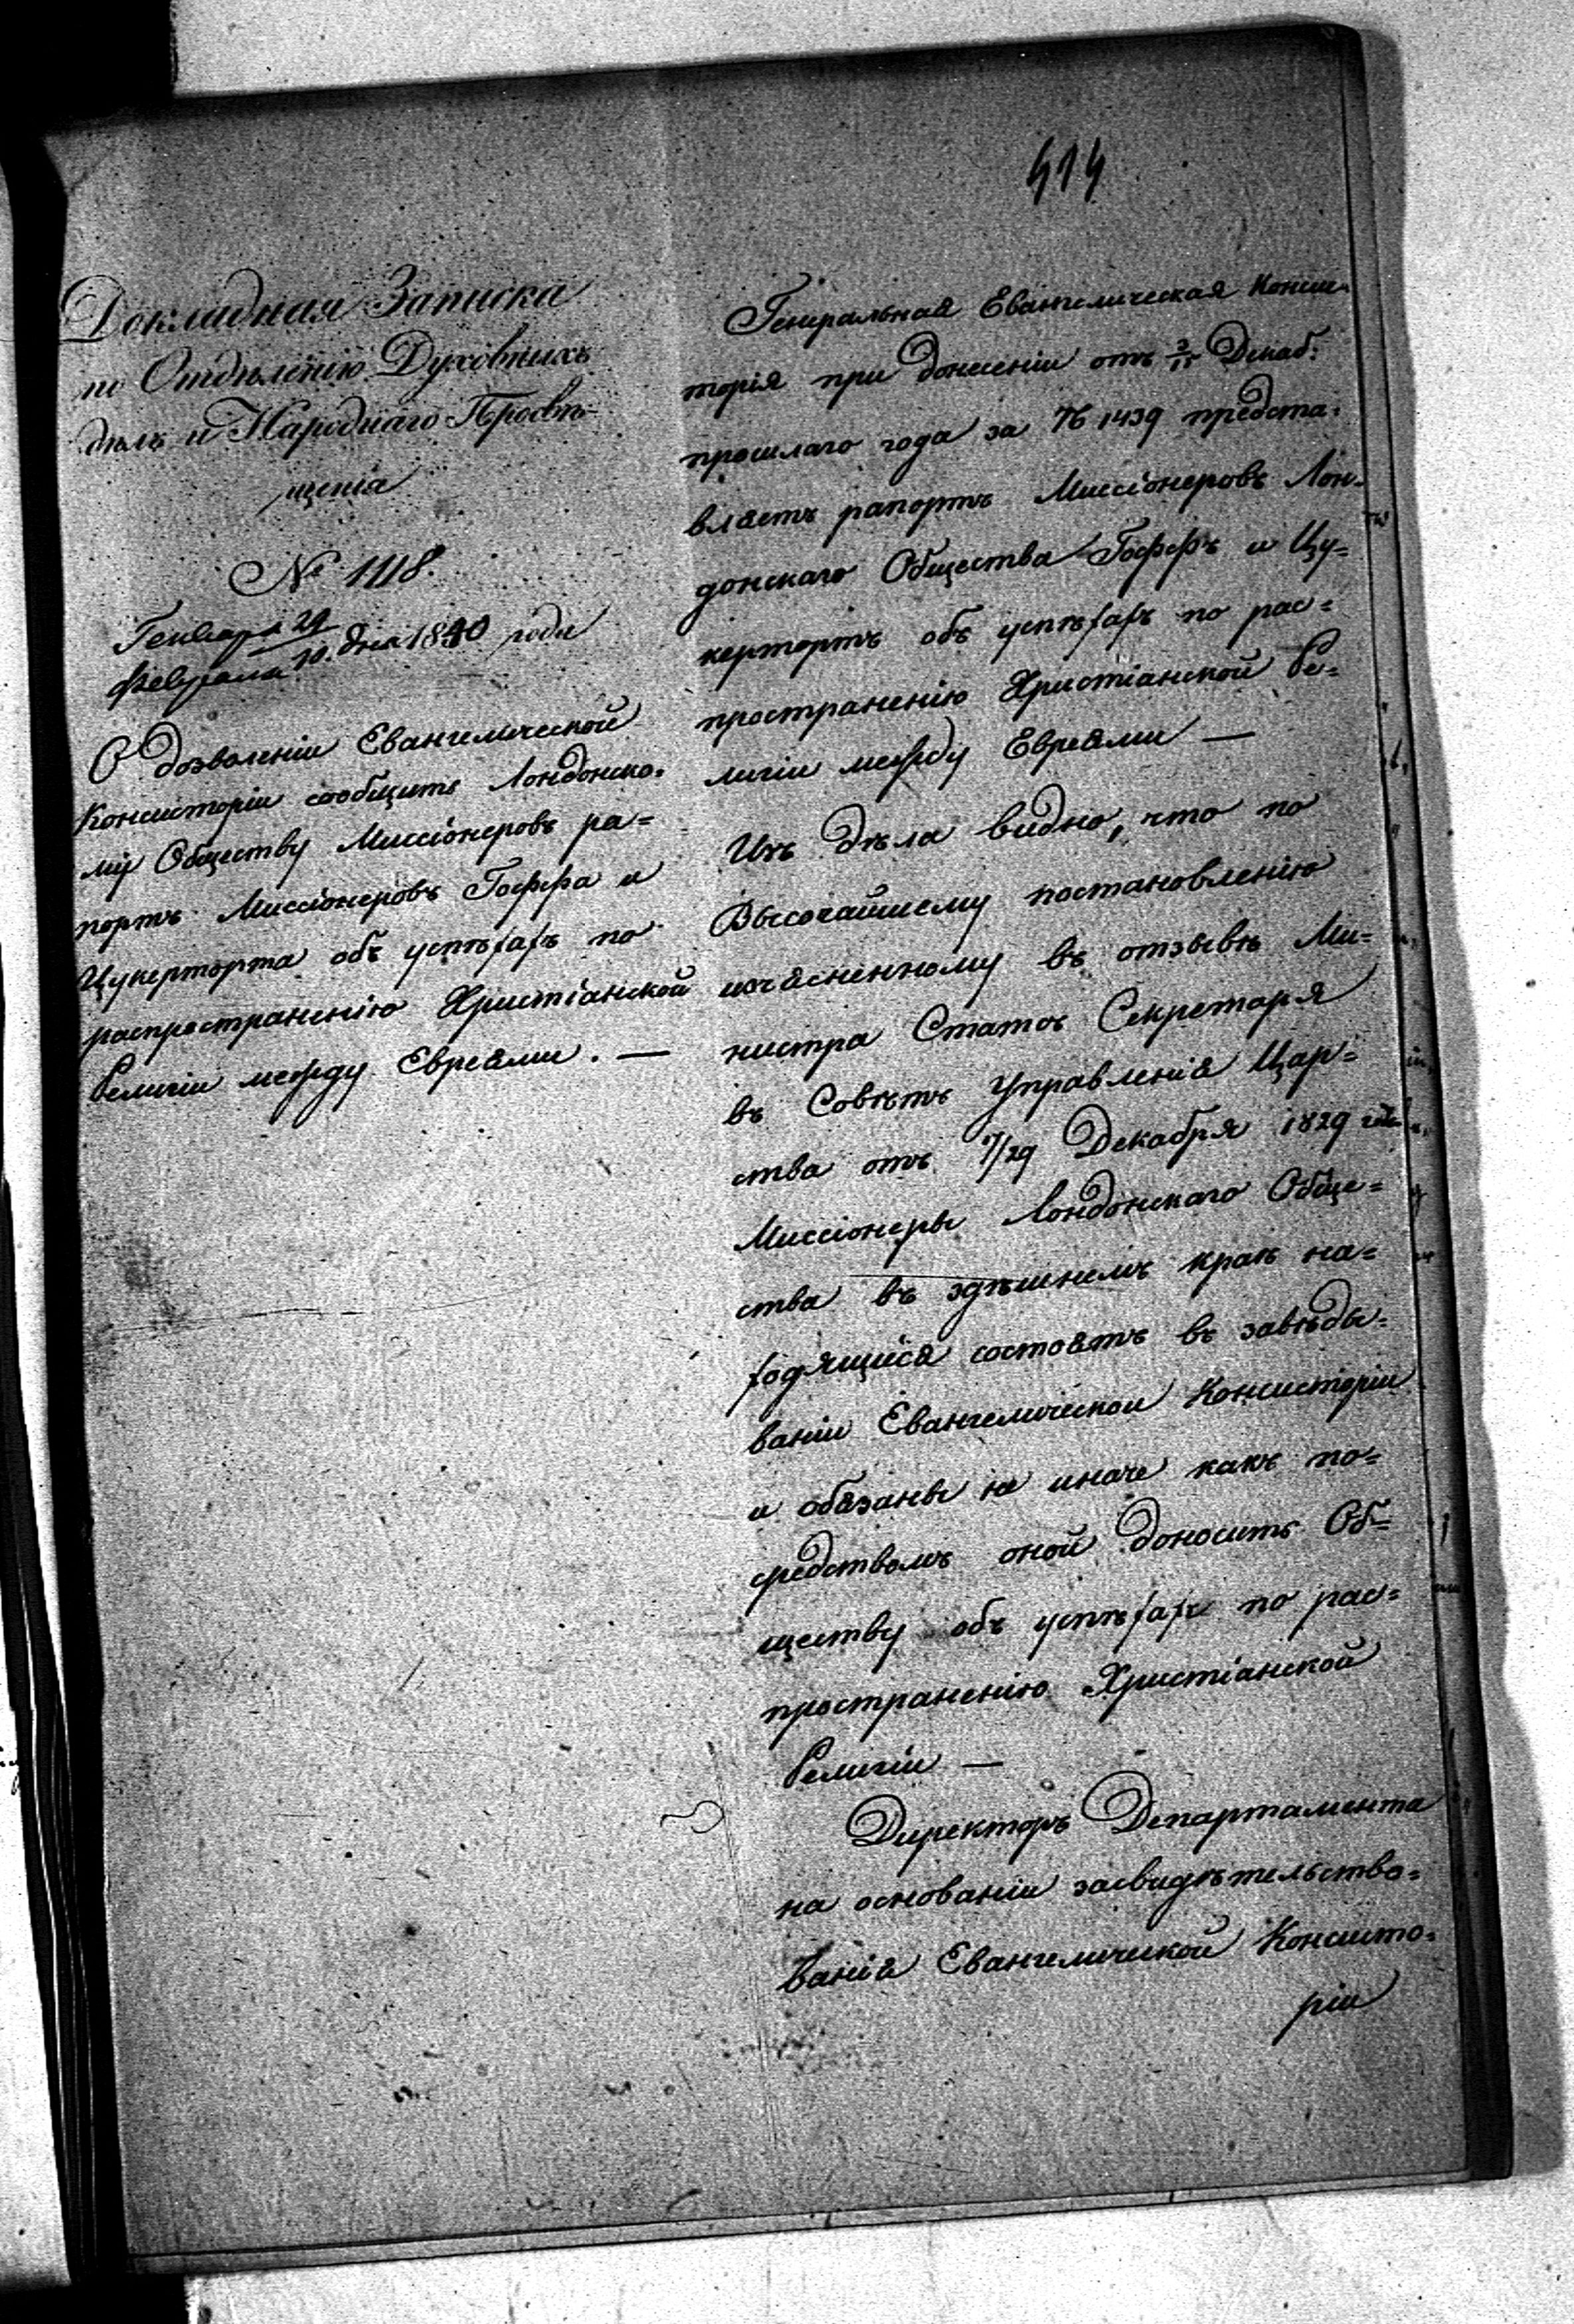 414
Докладная Записка
по Отдѣленію Духовныхъ
дѣлъ и Народнаго Просвѣ-
щенія
№ 1118.
Генваря 29
Февраля 10. дня 1840 года
О дозволеніи Евангелической
Консисторіи сообщить Лондонско-
му Обществу Миссіонеровъ ра=
портъ Миссіонеровъ Гоффа и
Цукерторта объ успѣхахъ по
распространенію Христіанской
Религіи между Евреями. —
Генеральная Евангелическая Консис-
торія при донесеніи отъ 3/15 Декаб:
прошлаго года за № 1439 предста-
вляетъ рапортъ Миссіонеровъ Лон-
донскаго Общества Гоффъ и Цу=
кертортъ объ успѣхахъ по рас=
пространенію Христіанской Ре=
лигіи между Евреями —
Изъ дѣла видно, что по
Высочайшему постановленію
изъясненному въ отзывѣ Ми=
нистра Статсъ Секретаря
въ Совѣтъ Управленія Цар=
ства отъ 17/29 Декабря 1829 года
Миссіонеры Лондонскаго Обще=
ства въ здѣшнемъ краѣ на=
ходящіися состоятъ въ завѣды=
ваніи Евангелической Консисторіи
и обязаны не иначе какъ по=
средствомъ оной доносить Об=
ществу объ успѣхахъ по рас=
пространенію Христіанской
Религіи —
Директоръ Департамента
на основаніи засвидѣтельство=
ванія Евангелической Консисто=
ріи